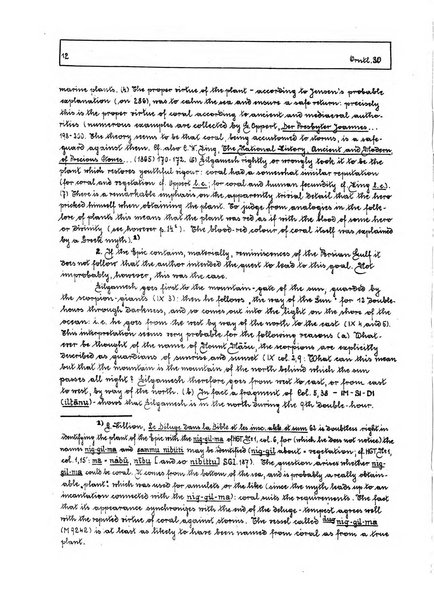 12
Orntl. 30
marine plants. (4) The proper virtue of the plant - according to Jensen's probable
explanation (on 286), was to calm the sea and ensure a safe return: precisely
this is the proper virtue of coral according to ancient and mediaeval autho-
rities (numerous examples are collected by G. Oppert, Der Presbyter Joannes...
198-230. The theory seems to be that coral, being accustomed to storms, is a safe-
guard against them. Cf. also C.W. King, The Natural History, Ancient and Modern
of Precious Stones... (1865) 170-172. (6) Gilgamesh rightly or wrongly took it to be the
plant which restores youthful vigour: coral had a somewhat similar reputation
(for coral and vegetation cf. Oppert l.c.; for coral and human fecundity cf. King l.c.).
(7) There is a remarkable emphasis on the apparently trivial detail that the hero
pricked himself when obtaining the plant. To judge from analogies in the folk-
lore of plants this means that the plant was red as if with the blood of some hero
or divinity (see, however p. 14). The blood-red colour of coral itself was explained
by a Greek myth.2)
2. If the Epic contains, materially, reminiscences of the Persian Gulf it
does not follow that the author intended the quest to lead to this goal. Not
improbably, however, this was the case.
Gilgamesh goes first to the mountain-gate of the sun, guarded by
the scorpion-giants (IX 3): then he follows "the way of the Sun" for 12 double-
hours through darkness, and so comes out into the light on the shore of the
ocean: i.e. he goes from the west by way of the north to the east (IX 4 and 5).
This interpretation seems very probable for the following reasons (a) What-
ever be thought of the name of Mount Mâšu, the scorpions are explicitly
described as guardians of sunrise and sunset (IX col. 2,9: What can this mean
but that the mountain is the mountain of the north behind which the sun
passes all night? Gilgamesh therefore goes from west to east, or from east
to west, by way of the north. (b) In fact a fragment of Col. 5, 38 - IM-SI-DI
(iltānu) - shows that Gilgamesh is in the north during the 9th double-hour.
2) E. Sillion, Le Déluge dans la Bible et les insc. akk. et sum. 63 is doubtless right in
identifying the plant of the Epic with the nig-gil-ma of HGT, No 1, col. 6, for (which he does not notice) the
names nig-gil-ma and šammu nibitti may be identified (nig-gil about = vegetation; cf. HGT, No 1,
col. 1, 15: ma = nabû, nību [and so nibittu] SGL 187). The question arises whether nig-
gil-ma could be coral. It comes from the bottom of the sea, and is probably a really obtain-
able "plant" which was used for amulets or the like (since the myth leads up to an
incantation connected with the nig-gil-ma): coral suits the requirements. The fact
that its appearance synchronizes with the end of the deluge-tempest agrees well
with the reputed virtue of coral against storms. The vessel called nig-gil-ma
(M 9242) is at least as likely to have been named from coral as from a true
plant.